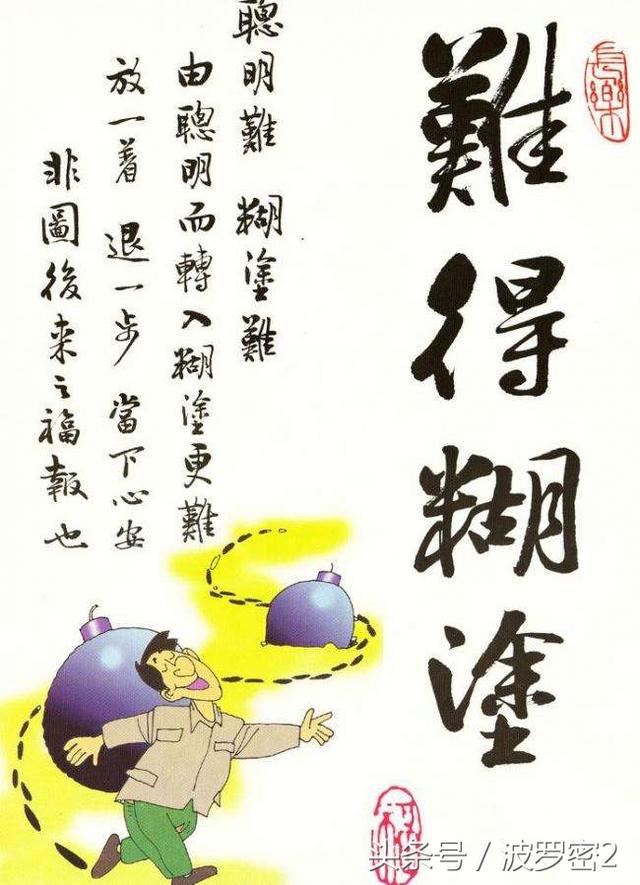 難得糊塗
長樂
聰明難 糊塗難
由聰明而轉入糊塗更難
放一着 退一步 當下心安
非圖後来之福報也
头条号 / 波罗密2